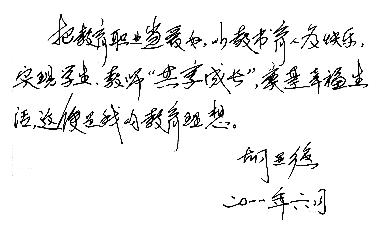 把教育职业当爱好,以教书育人为快乐,
实现学生、教师“共享成长”,奠基幸福生
活,这便是我的教育理想。
胡
二〇一一年六月